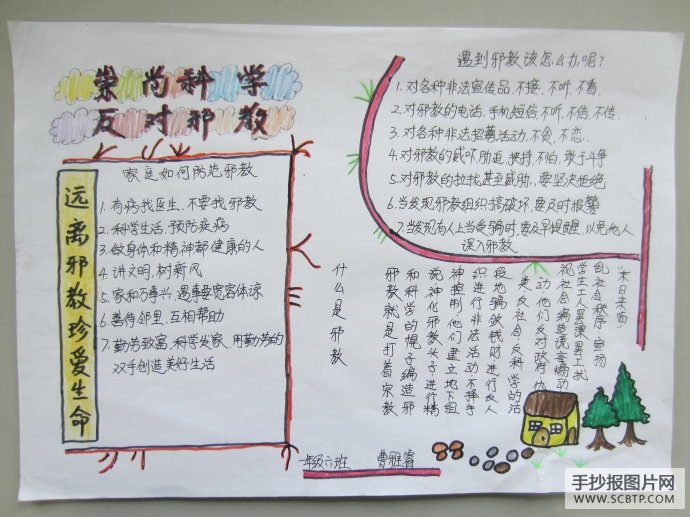 崇尚科学
反对邪教
远离邪教珍爱生命
家庭如何防范邪教
1.有病找医生,不要找邪教
2.科学生活,预防疾病
3.做身体和精神都健康的人
4.讲文明,树新风
5.家和万事兴,遇事要宽容体谅
6.善待邻里,互相帮助
7.勤劳致富,科学发家,用勤劳的
双手创造美好生活
遇到邪教该怎么办呢?
1.对各种非法宣传品,不接、不听、不看,
2.对邪教的电话、手机短信不听、不信、不传
3.对各种非法招募活动,不贪、不恋.
4.对邪教的威吓、胁迫、挟持不怕,敢于斗争
5.对邪教的拉拢甚至威胁,要坚决拒绝
6.当发现邪教组织搞破坏,要及时报警
7.当发现有人上当受骗时,要及早提醒,以免他人
误入邪教.
什么是邪教
邪教就是打着宗教
和科学的幌子编造邪
说神化邪教头子进行精
神控制他们建立地下组
织进行非法活动不择手
段地骗敛钱财进行反人
类反社会反科学的活
动他们反对政府
视社会病造谎言煽动
学生工人罢课罢工扰
乱社会秩序宣扬
"末日来临"
一年级六班 曹雅睿
手抄报图片网
WWW.SCBTP.COM